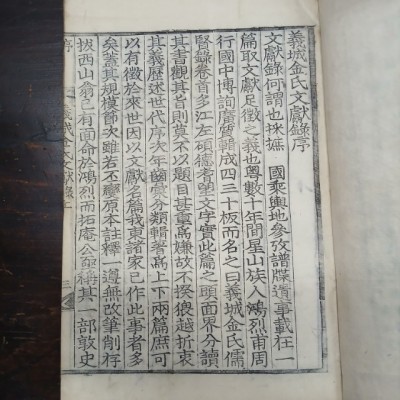 義城金氏文獻錄序
文獻錄何謂也採摭 國乘輿地參攷譜牒遺事載在一
篇取文獻足徵之義也粤數十年間星山族人鴻烈甫周
行國中博詢廣質輯成四三十板而名之曰義城金氏儒
賢錄卷首多江左碩德耆望文字實此篇之頭面界分讀
其書觀其旨則莫不以題目甚重爲嫌故不揆猥越折衷
其義歷述世代序次年齒彙分類輯者爲上下兩篇庶可
以有徵於來世因以文獻名篇我東諸家已作此事者多
矣蓋其規模節次雖若不襲原本註釋一遵無改筆削存
拔西山翁已有面命於鴻烈而拓庵公亟稱其一部敦史
序 義城金氏文獻錄上 三